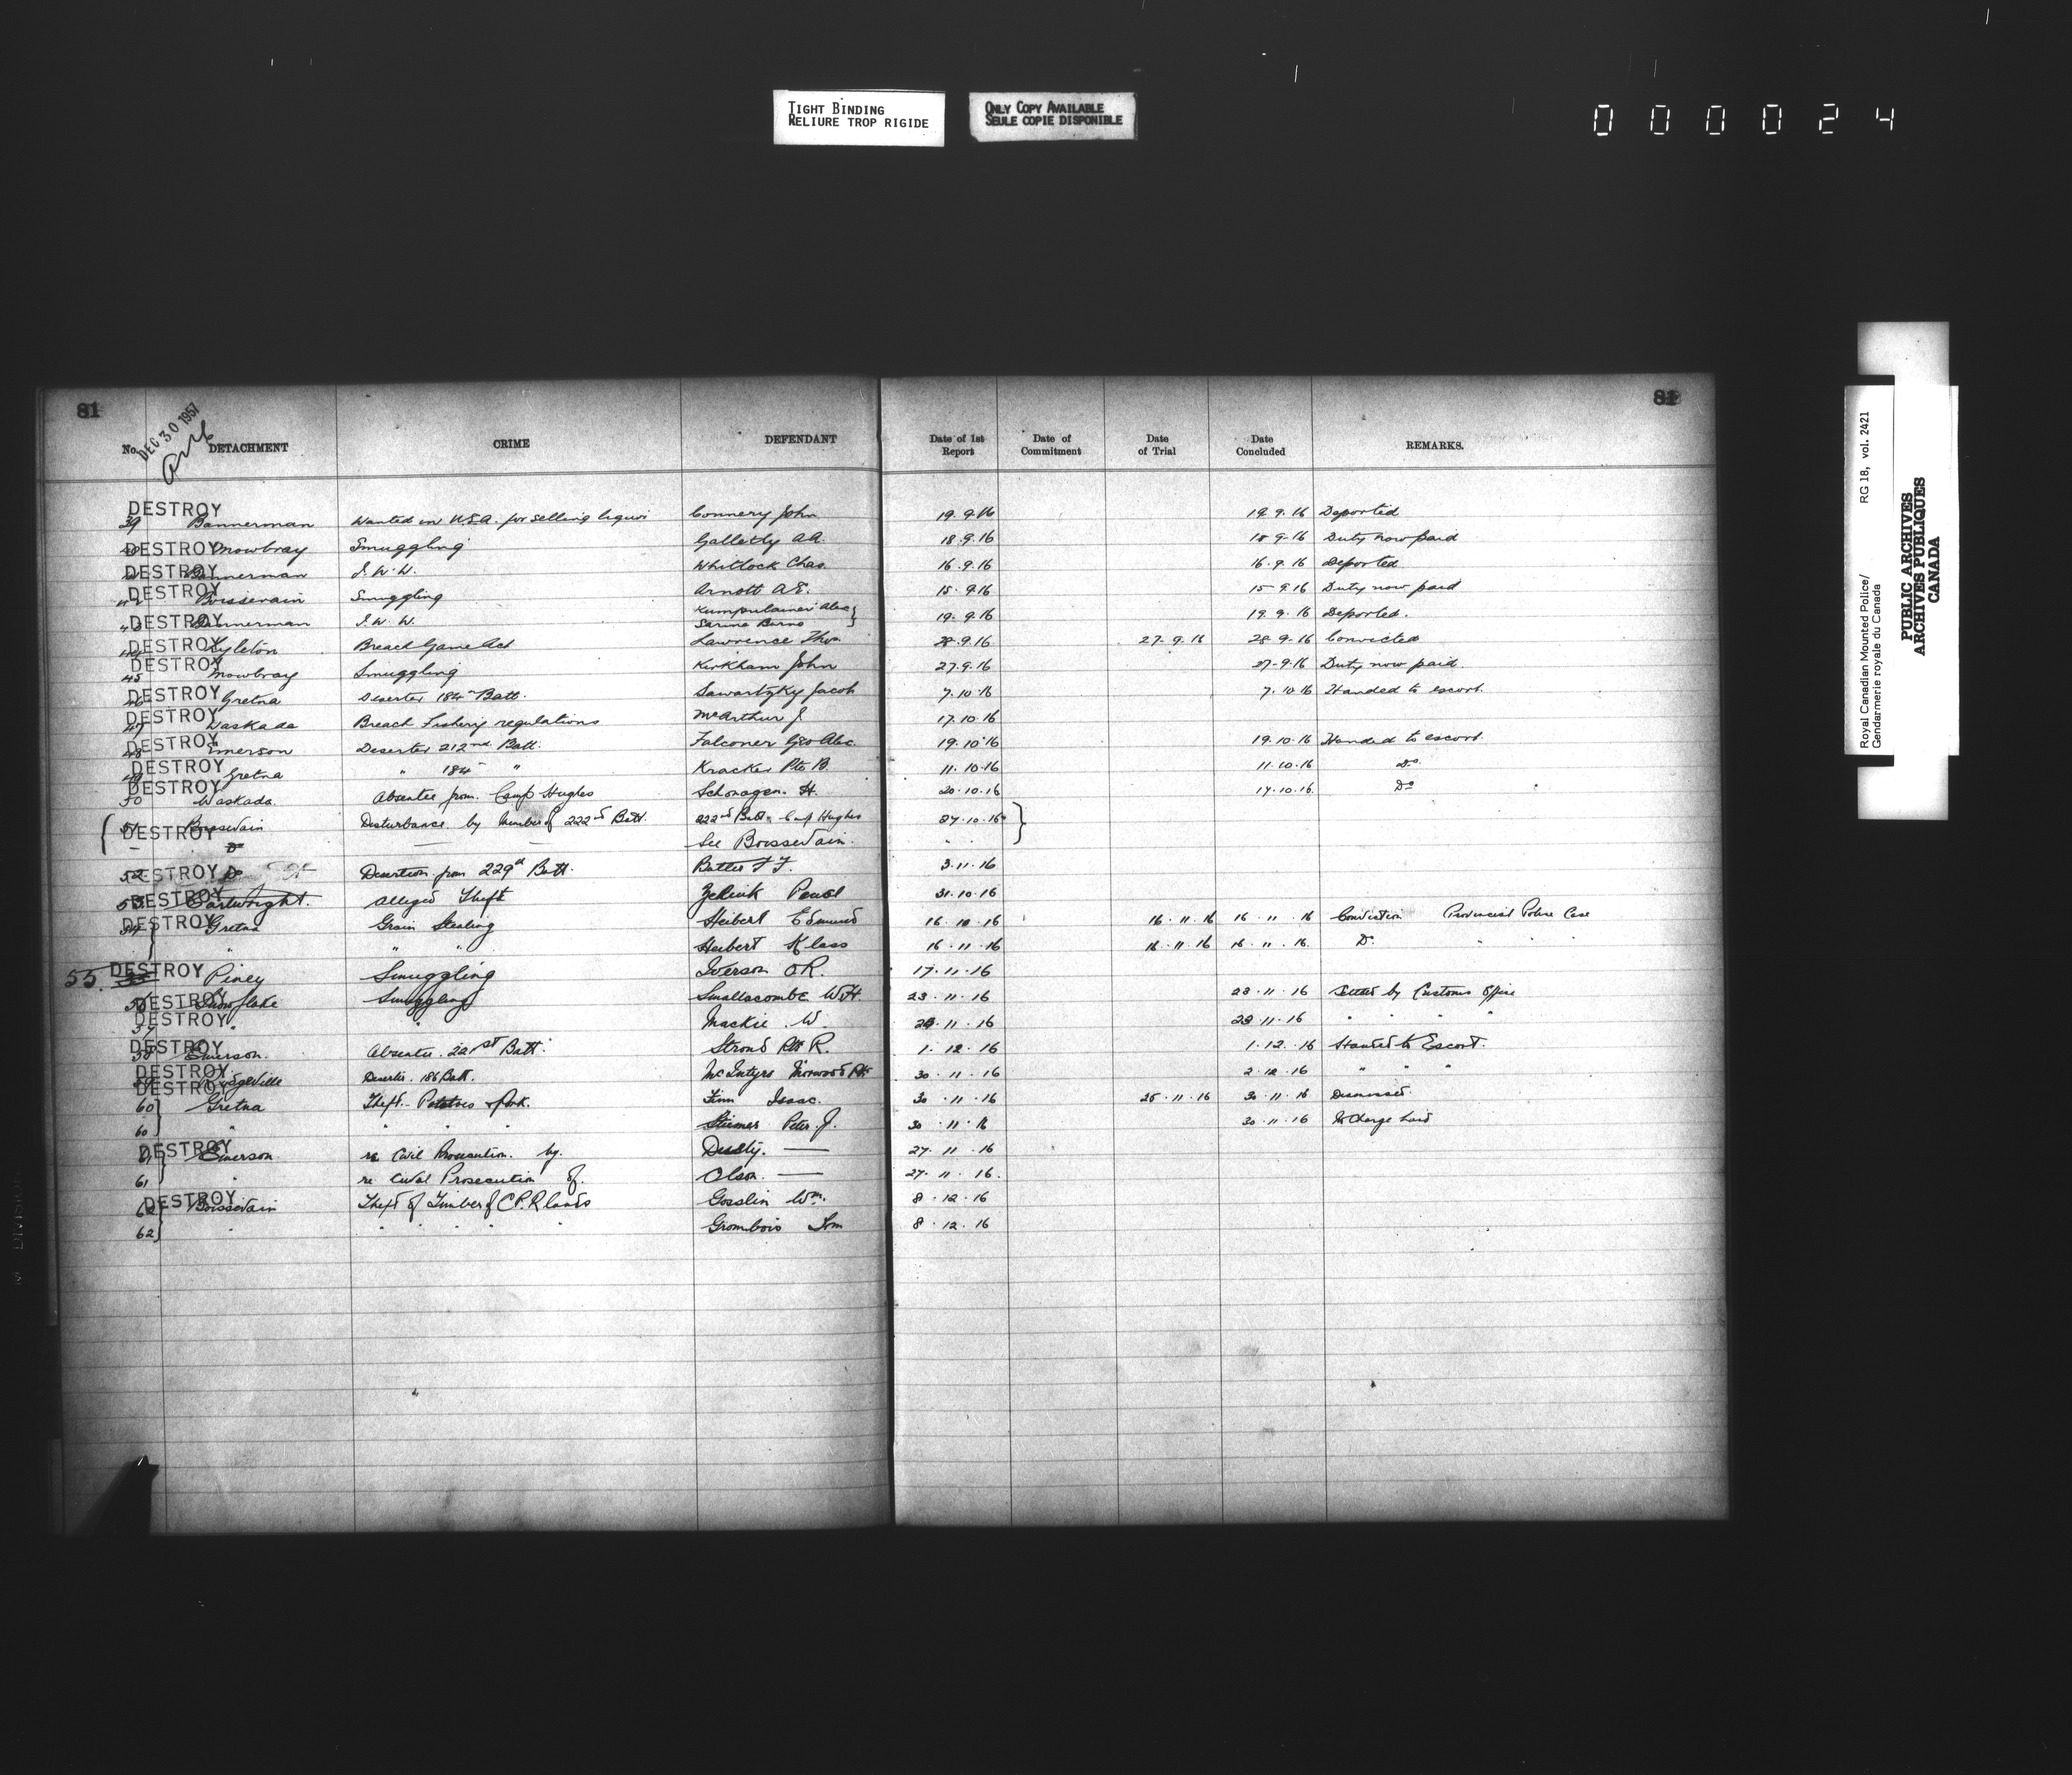 TIGHT BINDING
RELIURE TROP RIGIDE
ONLY COPY AVAILABLE
SEULE COPIE DISPONIBLE
000024
81
81
DEC 30 1957
No. DETACHMENT CRIME DEFENDANT Date of 1st Report Date of Commitment Date of Trial Date Concluded REMARKS.
DESTROY
39 Bannerman Wanted in U.S.A. for selling liquor Connery John 19.9.16 19.9.16 Deported
DESTROY Mowbray Smuggling Galletly A.A. 18.9.16 18.9.16 Duty now paid
DESTROY Bannerman I.W.W. Whitlock Chas. 16.9.16 16.9.16 Deported
DESTROY
42 Boissevain Smuggling Arnott A.E. 15.9.16 15-9.16 Duty now paid
DESTROY
43 Bannerman I.W.W. Alex } 19.9.16 19.9.16 Deported.
DESTROY
44 Lyleton Breach Game Act Lawrence Thos 28.9.16 27.9.16 28.9.16 Convicted
DESTROY
45 Mowbray Smuggling Kirkham John 27.9.16 27-9.16 Duty now paid.
DESTROY
46 Gretna Deserter 184th Batt. Sawartzky Jacob 7.10.16 7.10.16 Handed to escort.
DESTROY
47 Waskada Breach Fishery regulations McArthur J 17.10.16
DESTROY
48 Emerson Deserter 212nd Batt. Falconer Geo Alec. 19.10.16 19.10.16 Handed to escort.
DESTROY
49 Gretna " 184th " Kracker Pte B. 11.10.16 11.10.16 Do.
DESTROY
50 Waskada. Absentee from Camp Hughes Schonagen. H. 20.10.16 17.10.16. Do
{ 51 Boissevain Disturbance by Member of 222nd Batt. 222nd Batt. Camp Hughes 27.10.16 }
DESTROY
– Do — — See Boissevain. " "
52 DESTROY Do Desertion from 229th Batt. Butler F F. 3.11.16
53 DESTROY Cartwright. Alleged Theft Zelink Pearl 31.10.16
DESTROY
54 Gretna Grain Stealing Heibert Edmund 16.10.16 16.11.16 16.11.16 Conviction Provincial Police Case
" " " Heibert Klass 16.11.16 16.11.16 16.11.16. Do. " " "
DESTROY
55. Piney Smuggling Iverson O.R. 17.11.16
DESTROY
56 Snowflake Smuggling Smallacombe W.H. 23.11.16 23.11.16 Settled by Customs Office
DESTROY
57 " " Mackie W. 23.11.16 " " " "
DESTROY
58 Emerson. Absentee. 221st Batt. Strond Pte R. 1.12.16 1.12.16 Handed to Escort.
DESTROY
Ridgeville Deserter. 186 Batt. McIntyre Norwood Pte 30.11.16 2.12.16 " " "
DESTROY
60 } Gretna Theft. Potatoes & Pork. Finn Isaac. 30.11.16 25.11.16 30.11.16 Dismissed.
60 } " " " " Peter J. 30.11.16 30.11.16 No Charge laid
DESTROY
61 } Emerson. re Civil Prosecution. by. — 27.11.16
61 } " re Civil Prosecution of. Olson. — 27.11.16.
DESTROY
62 } Boissevain Theft of Timber of C.P.R lands Gosslin Wm. 8.12.16
62 } " " " " " Grombois Tom 8.12.16
Royal Canadian Mounted Police/
Gendarmerie royale du Canada
RG 18, vol. 2421
PUBLIC ARCHIVES
ARCHIVES PUBLIQUES
CANADA